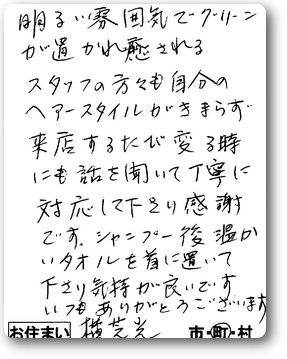 明るい雰囲気でグリーン
が置かれ癒される
スタッフの方々も自分の
ヘアースタイルがきまらず
来店するたび変る時
にも話を聞いて丁寧に
対応して下さり感謝
です。シャンプー後温か
いタオルを首に置いて
下さり気持が良いです
いつもありがとうございます
お住まい 横芝光 市・町・村